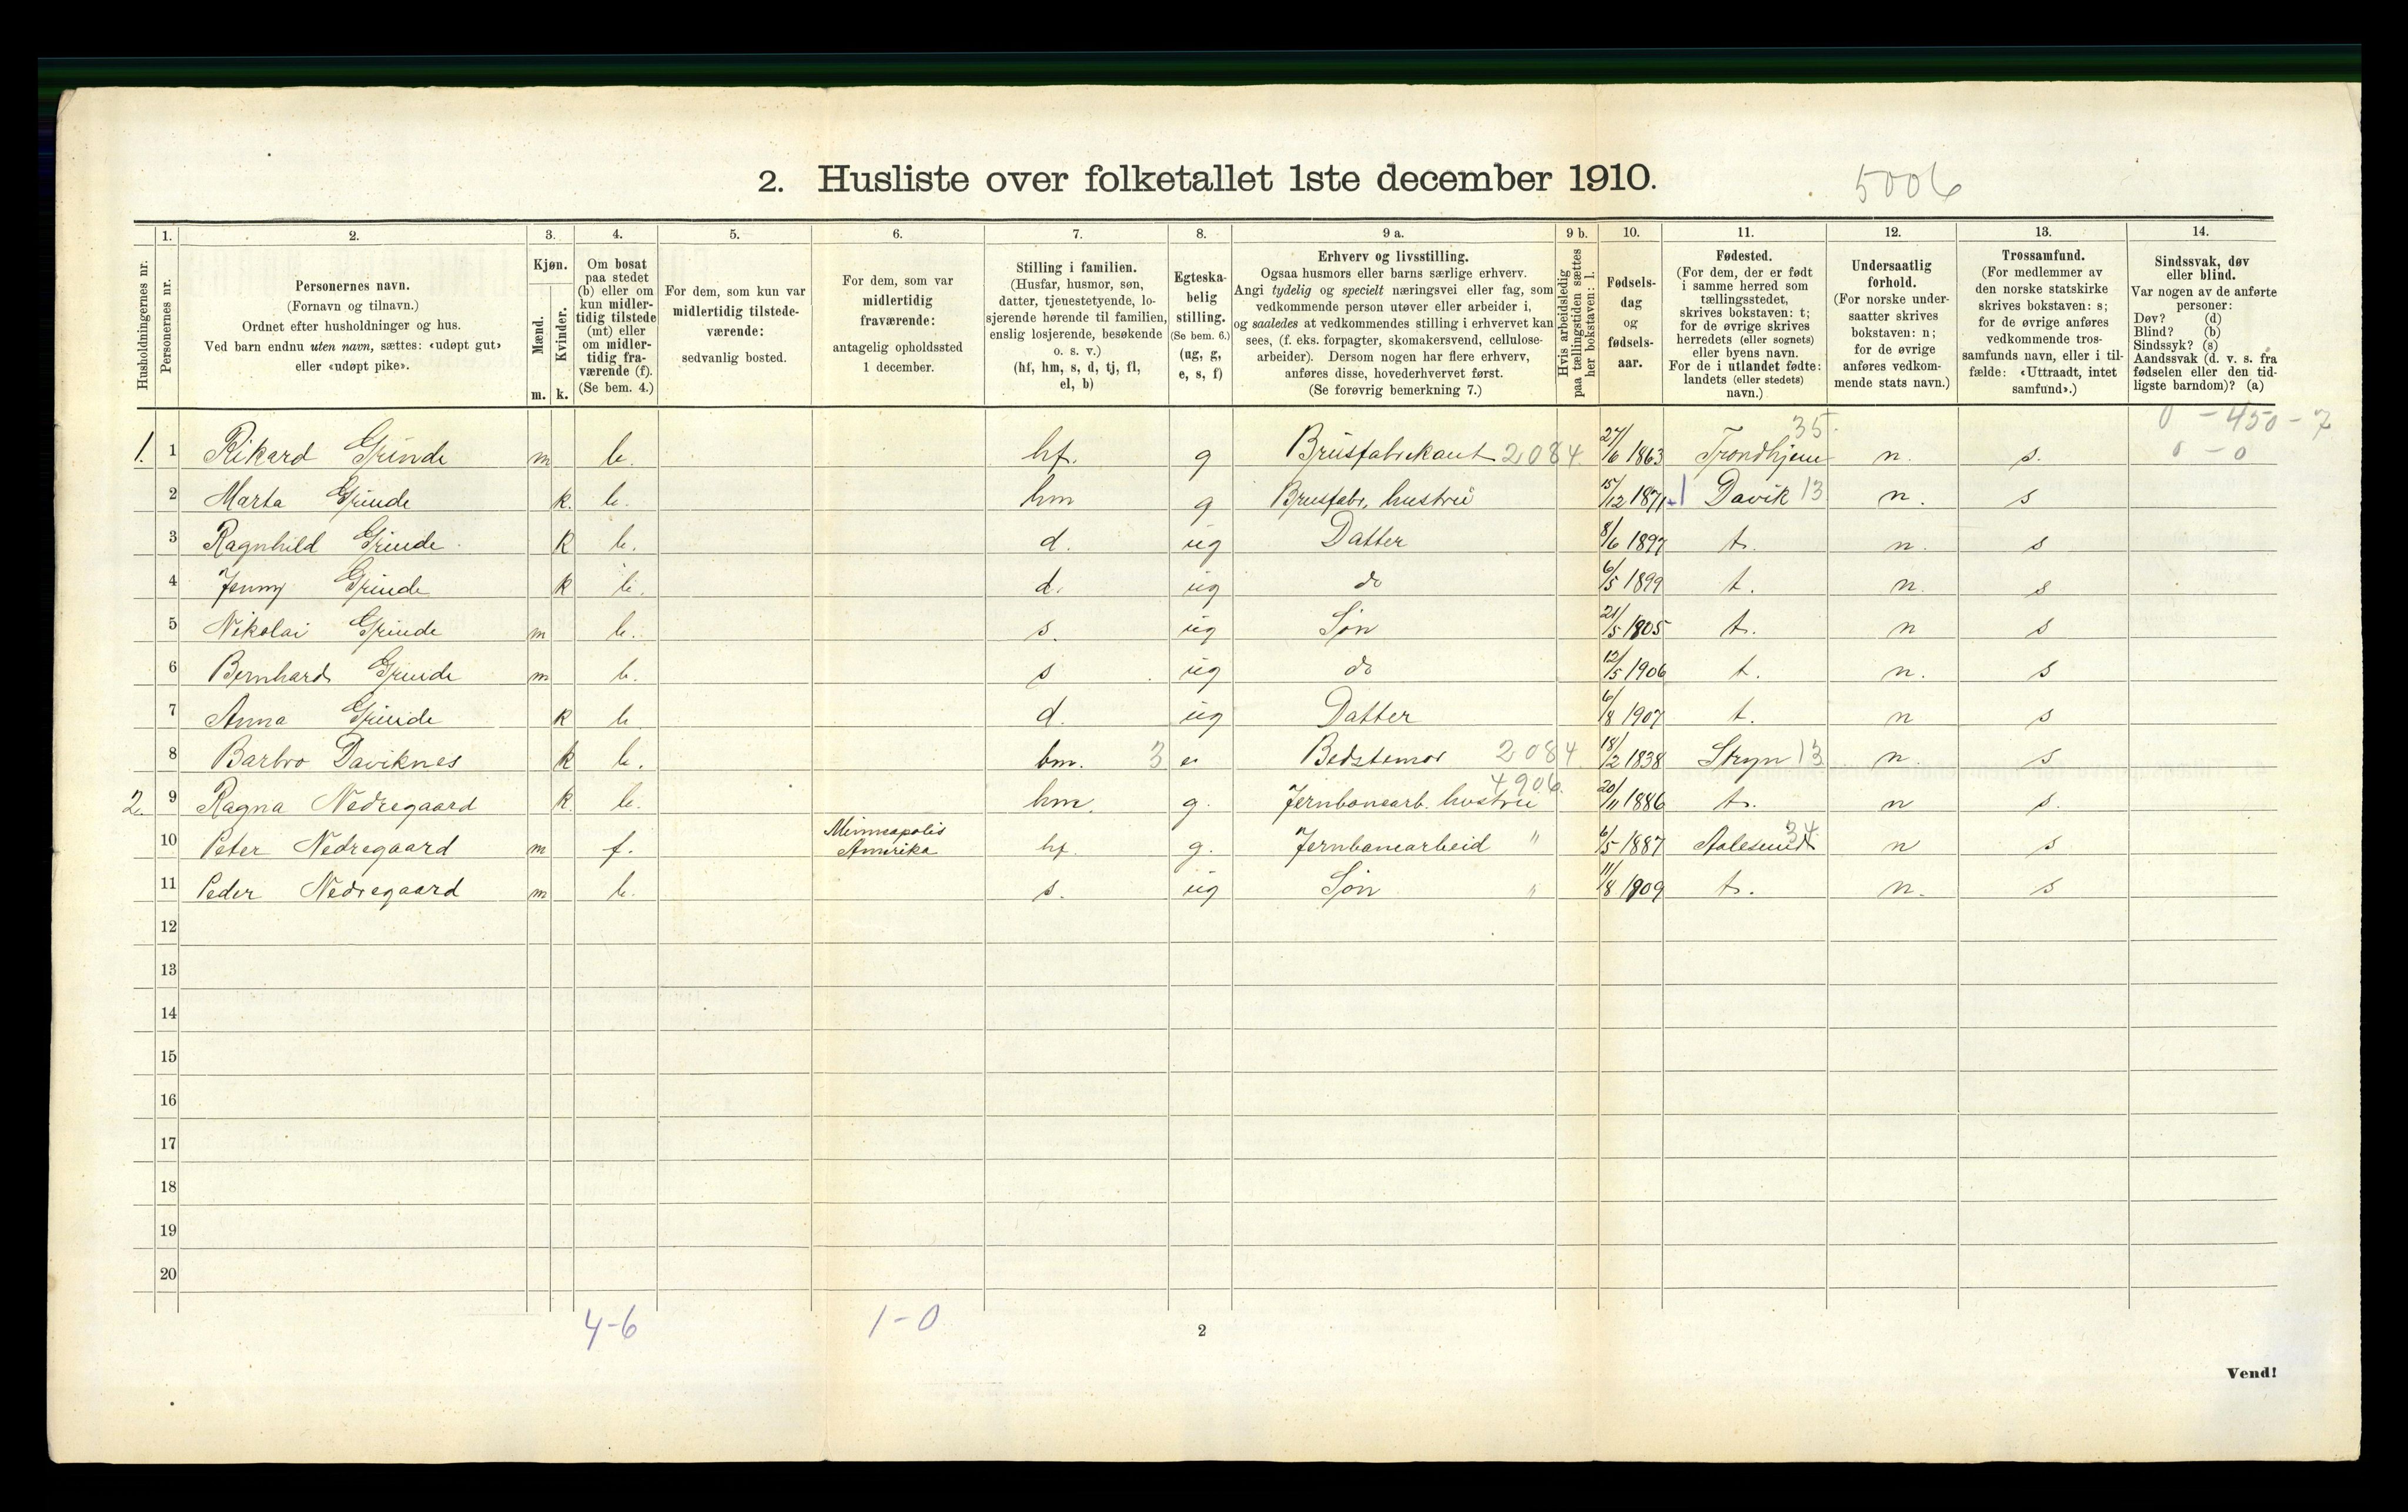 2. Husliste over folketallet 1ste december 1910.
5006
1. 2. 3. 4. 5. 6. 7. 8. 9 a. 9 b. 10. 11. 12. 13. 14.
Husholdningernes nr.
Personernes nr.
Personernes navn.
(Fornavn og tilnavn.)
Ordnet efter husholdninger og hus.
Ved barn endnu uten navn, sættes: «udøpt gut»
eller «udøpt pike».
Kjøn.
Mænd.
Kvinder.
m. k.
Om bosat
paa stedet
(b) eller om
kun midler-
tidig tilstede
(mt) eller
om midler-
tidig fra-
værende (f).
(Se bem. 4.)
For dem, som kun var
midlertidig tilstede-
værende:
sedvanlig bosted.
For dem, som var
midlertidig
fraværende:
antagelig opholdssted
1 december.
Stilling i familien.
(Husfar, husmor, søn,
datter, tjenestetyende, lo-
sjerende hørende til familien,
enslig losjerende, besøkende
o. s. v.)
(hf, hm, s, d, tj, fl,
el, b)
Egteska-
belig
stilling.
(Se bem. 6.)
(ug, g,
e, s, f)
Erhverv og livsstilling.
Ogsaa husmors eller barns særlige erhverv.
Angi tydelig og specielt næringsvei eller fag, som
vedkommende person utøver eller arbeider i,
og saaledes at vedkommendes stilling i erhvervet kan
sees, (f. eks. forpagter, skomakersvend, cellulose-
arbeider). Dersom nogen har flere erhverv,
anføres disse, hovederhvervet først.
(Se forøvrig bemerkning 7.)
Hvis arbeidsledig
paa tællingstiden sættes
her bokstaven: l.
Fødsels-
dag
og
fødsels-
aar.
Fødested.
(For dem, der er født
i samme herred som
tællingsstedet,
skrives bokstaven: t;
for de øvrige skrives
herredets (eller sognets)
eller byens navn.
For de i utlandet fødte:
landets (eller stedets)
navn.)
Undersaatlig
forhold.
(For norske under-
saatter skrives
bokstaven: n;
for de øvrige
anføres vedkom-
mende stats navn.)
Trossamfund.
(For medlemmer av
den norske statskirke
skrives bokstaven: s;
for de øvrige anføres
vedkommende tros-
samfunds navn, eller i til-
fælde: «Uttraadt, intet
samfund».)
Sindssvak, døv
eller blind.
Var nogen av de anførte
personer:
Døv? (d)
Blind? (b)
Sindssyk? (s)
Aandssvak (d. v. s. fra
fødselen eller den tid-
ligste barndom)? (a)
35. 0 - 450 - 7
1. 1 Rikard Grinde m b. hf. g Brusfabrikant 2084 27/6 1863 Trondhjem n. s. 0 - 0
2 Marta Grinde k. b. hm g Brusfabr. hustru 15/12 1871 -1 Davik 13 n. s
3 Ragnhild Grinde k b. d. ug Datter 8/6 1897 t. n. s
4 Jenny Grinde k b. d. ug do 6/5 1899 t. n. s
5 Nikolai Grinde m b. s. ug Søn 21/5 1805 t. n s
6 Bernhard Grinde m b. s ug do 12/5 1906 t. n. s
7 Anna Grinde k b d. ug Datter 6/8 1907 t. n s
8 Barbro Daviknes k b. bm. 3 e Bedstemor 2084 18/2 1838 Stryn 13 n. s
4906.
2. 9 Ragna Nedregaard k. b. hm. g. Jernbanearb. hustru 20/11 1886 t. n s.
Minneapolis 34
10 Peter Nedregaard m f. Amerika hf. g. Jernbanearbeid " 6/5 1887 Aalesund n s
11 Peder Nedregaard m b. s. ug Søn " 11/8 1909 t. n. s
12
13
14
15
16
17
18
19
20
4-6 1-0
2
Vend!